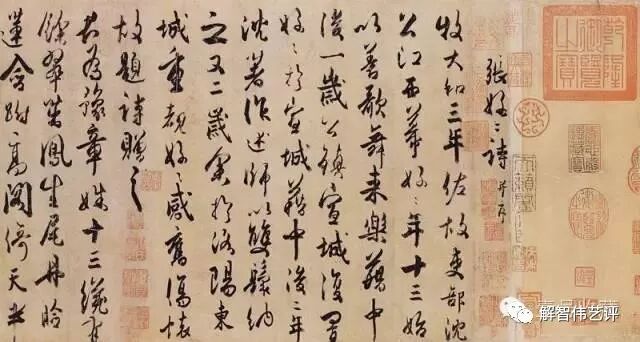 乾隆御覽之寶
張好〻詩 并序
牧大和三年佐故吏部沈
公江西幕好〻年十三始
以善歌舞来樂籍中
後一歲公鎮宣城復置
好〻於宣城籍中後二年
沈著作述師以雙鬟納
之又二歲余於洛陽東
城重覩好〻感舊傷懷
故題詩贈之
君為豫章姝十三纔有
餘翠茁鳳生尾丹臉
蓮含跗高閣倚天半
解智伟艺评